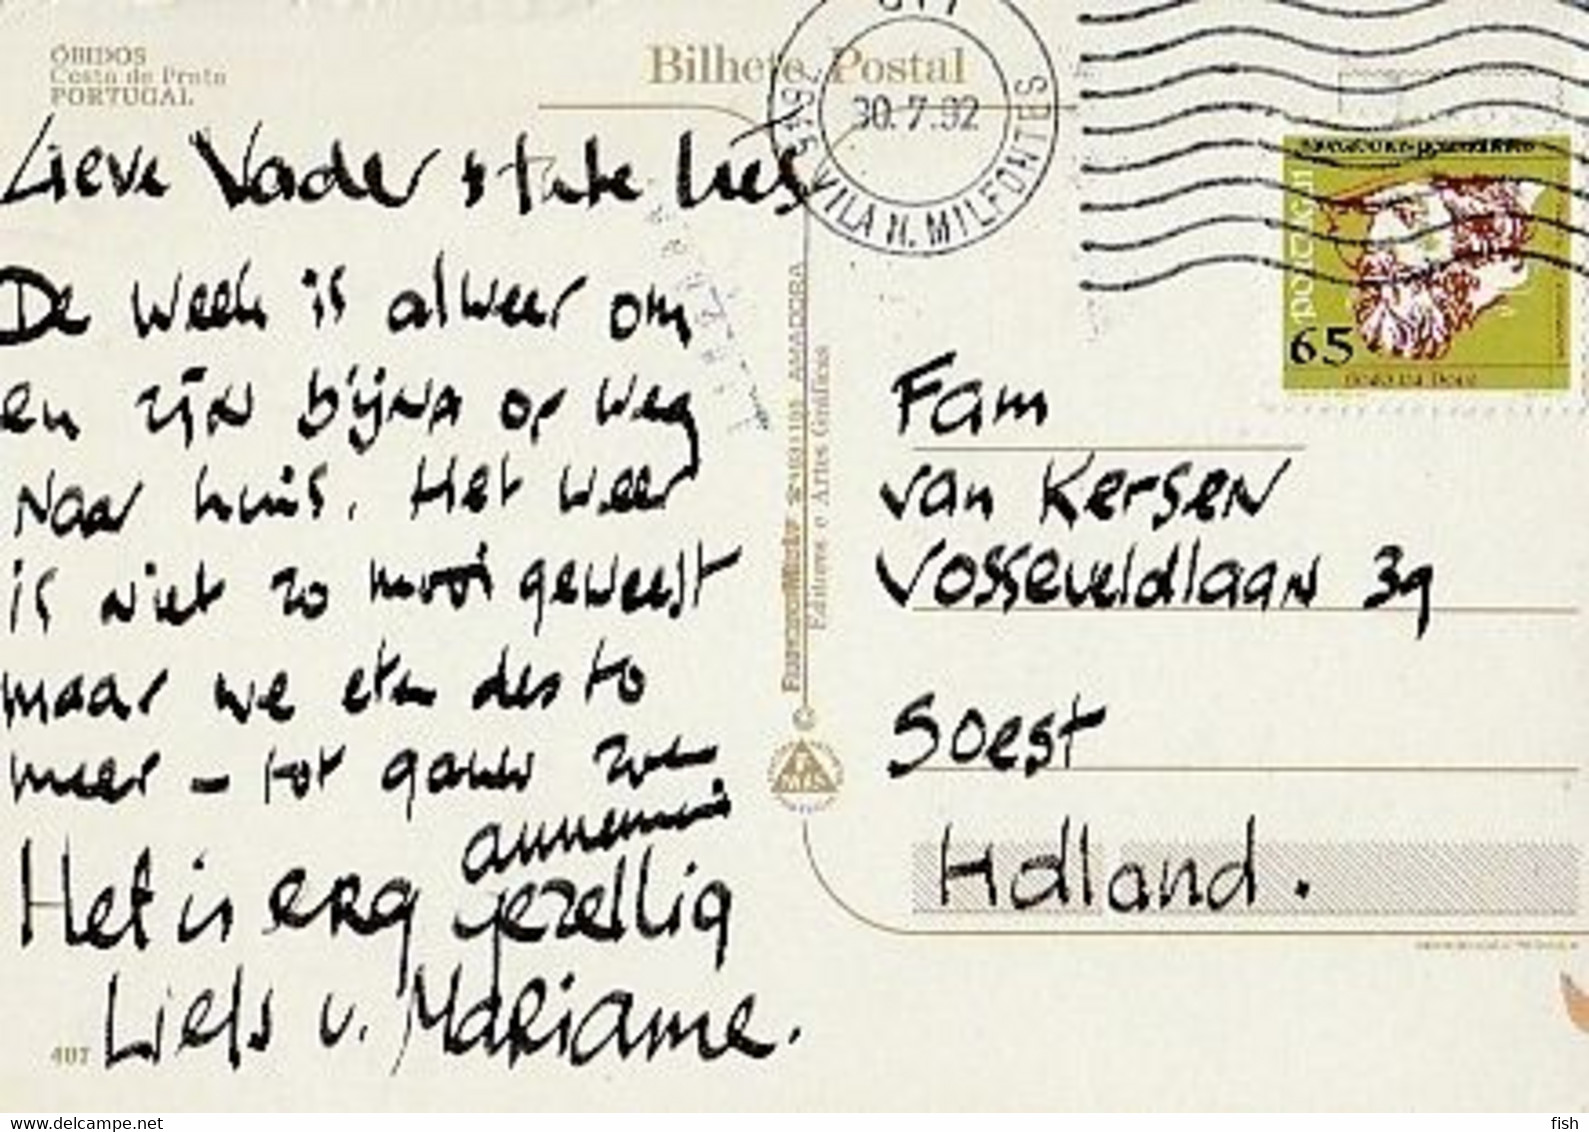 ÓBIDOS
Costa de Prata
PORTUGAL
Bilhete Postal
CTT
30.7.92
7645 VILA N. MILFONTES
Lieve Vader + tante Lies
De week is alweer om
en zijn bijna op weg
naar huis. Het weer
is niet zo mooi geweest
maar we eten des to
meer – tot gauw zoen
annemie
Het is erg gezellig
Liefs v. Marianne.
Fam
van Kersen
Vosseveldlaan 39
Soest
Holland.
portugal
65
Editores e Artes Gráficas
AMADORA
407
fish